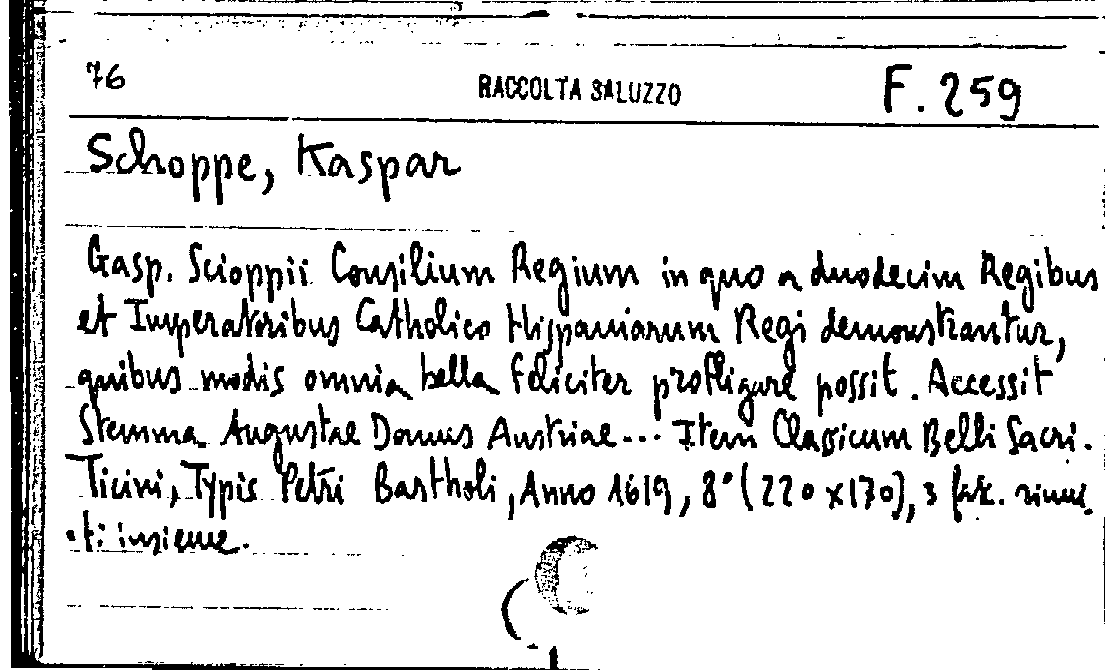 76 RACCOLTA SALUZZO F. 259
Schoppe, Kaspar
Gasp. Scioppii Consilium Regium in quo a duodecim Regibus
et Imperatoribus Catholico Hispaniarum Regi demonstrantur,
quibus modis omnia bella feliciter profligare possit. Accessit
Stemma Augustae Domus Austriae... Item Classicum Belli Sacri.
Ticini, Typis Petri Bartholi, Anno 1619, 8° (220 x 170), 3 fasc. riuni
ti insieme.